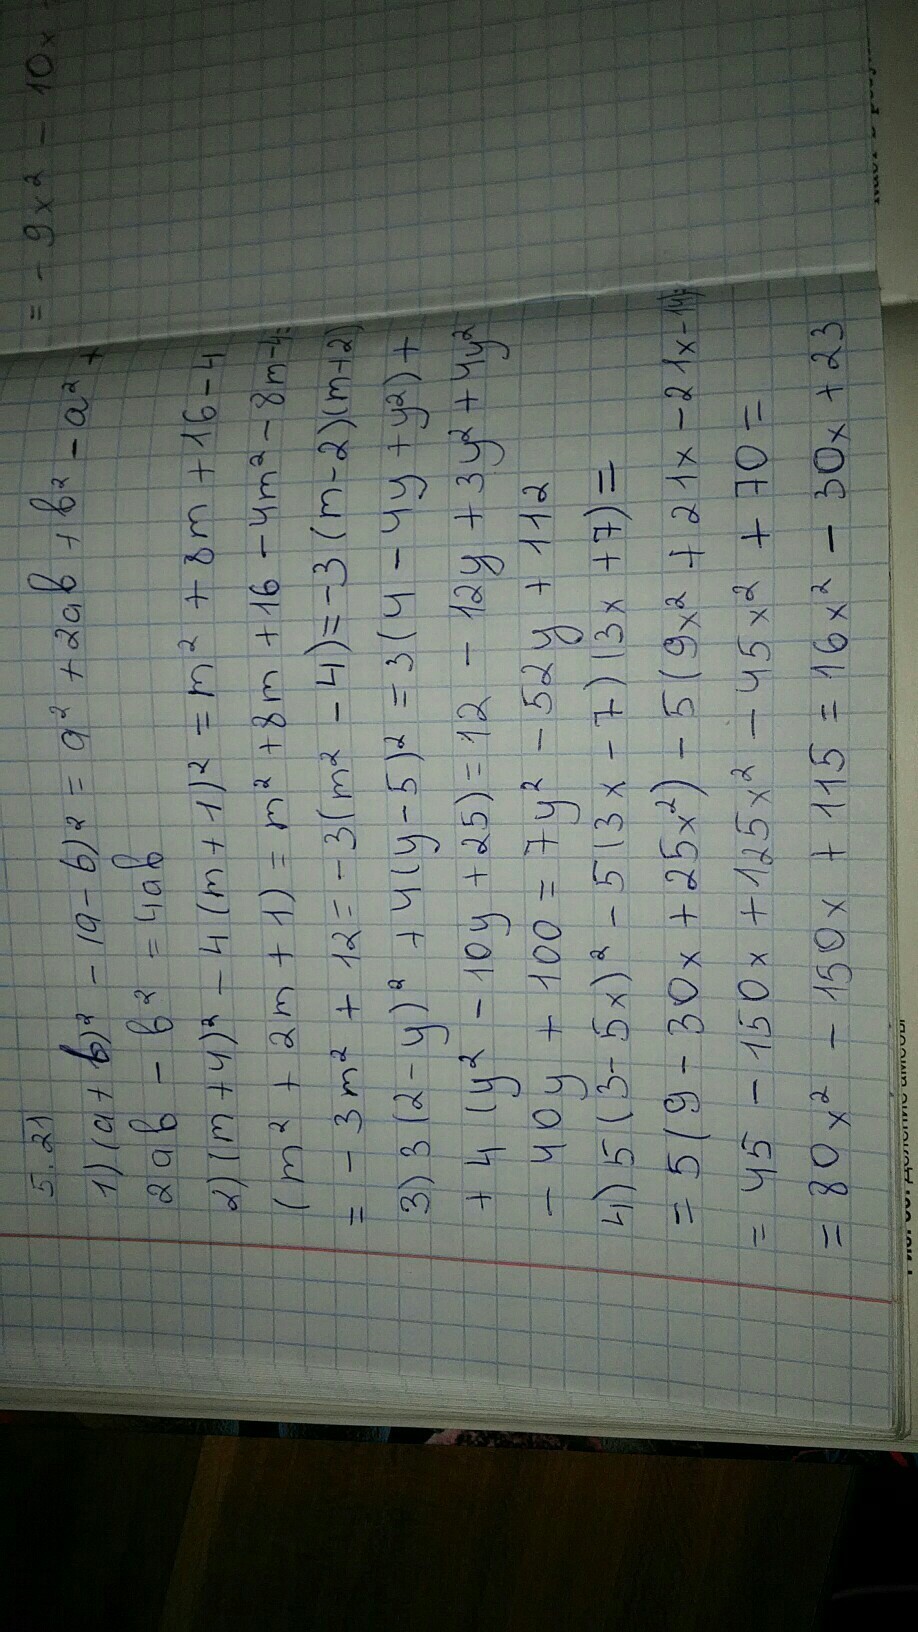 5.21
1) (a + b)² - (a - b)² = a² + 2ab + b² - a² +
2ab - b² = 4ab
2) (m + 4)² - 4 (m + 1)² = m² + 8m + 16 - 4
(m² + 2m + 1) = m² + 8m + 16 - 4m² - 8m - 4 =
= - 3m² + 12 = -3(m² - 4) = -3(m - 2)(m + 2)
3) 3 (2 - y)² + 4(y - 5)² = 3(4 - 4y + y²) +
+ 4 (y² - 10y + 25) = 12 - 12y + 3y² + 4y²
- 40y + 100 = 7y² - 52y + 112
4) 5 (3 - 5x)² - 5(3x - 7)(3x + 7) =
= 5(9 - 30x + 25x²) - 5(9x² + 21x - 21x - 14) =
= 45 - 150x + 125x² - 45x² + 70 =
= 80x² - 150x + 115 = 16x² - 30x + 23
= - 9x² - 10x